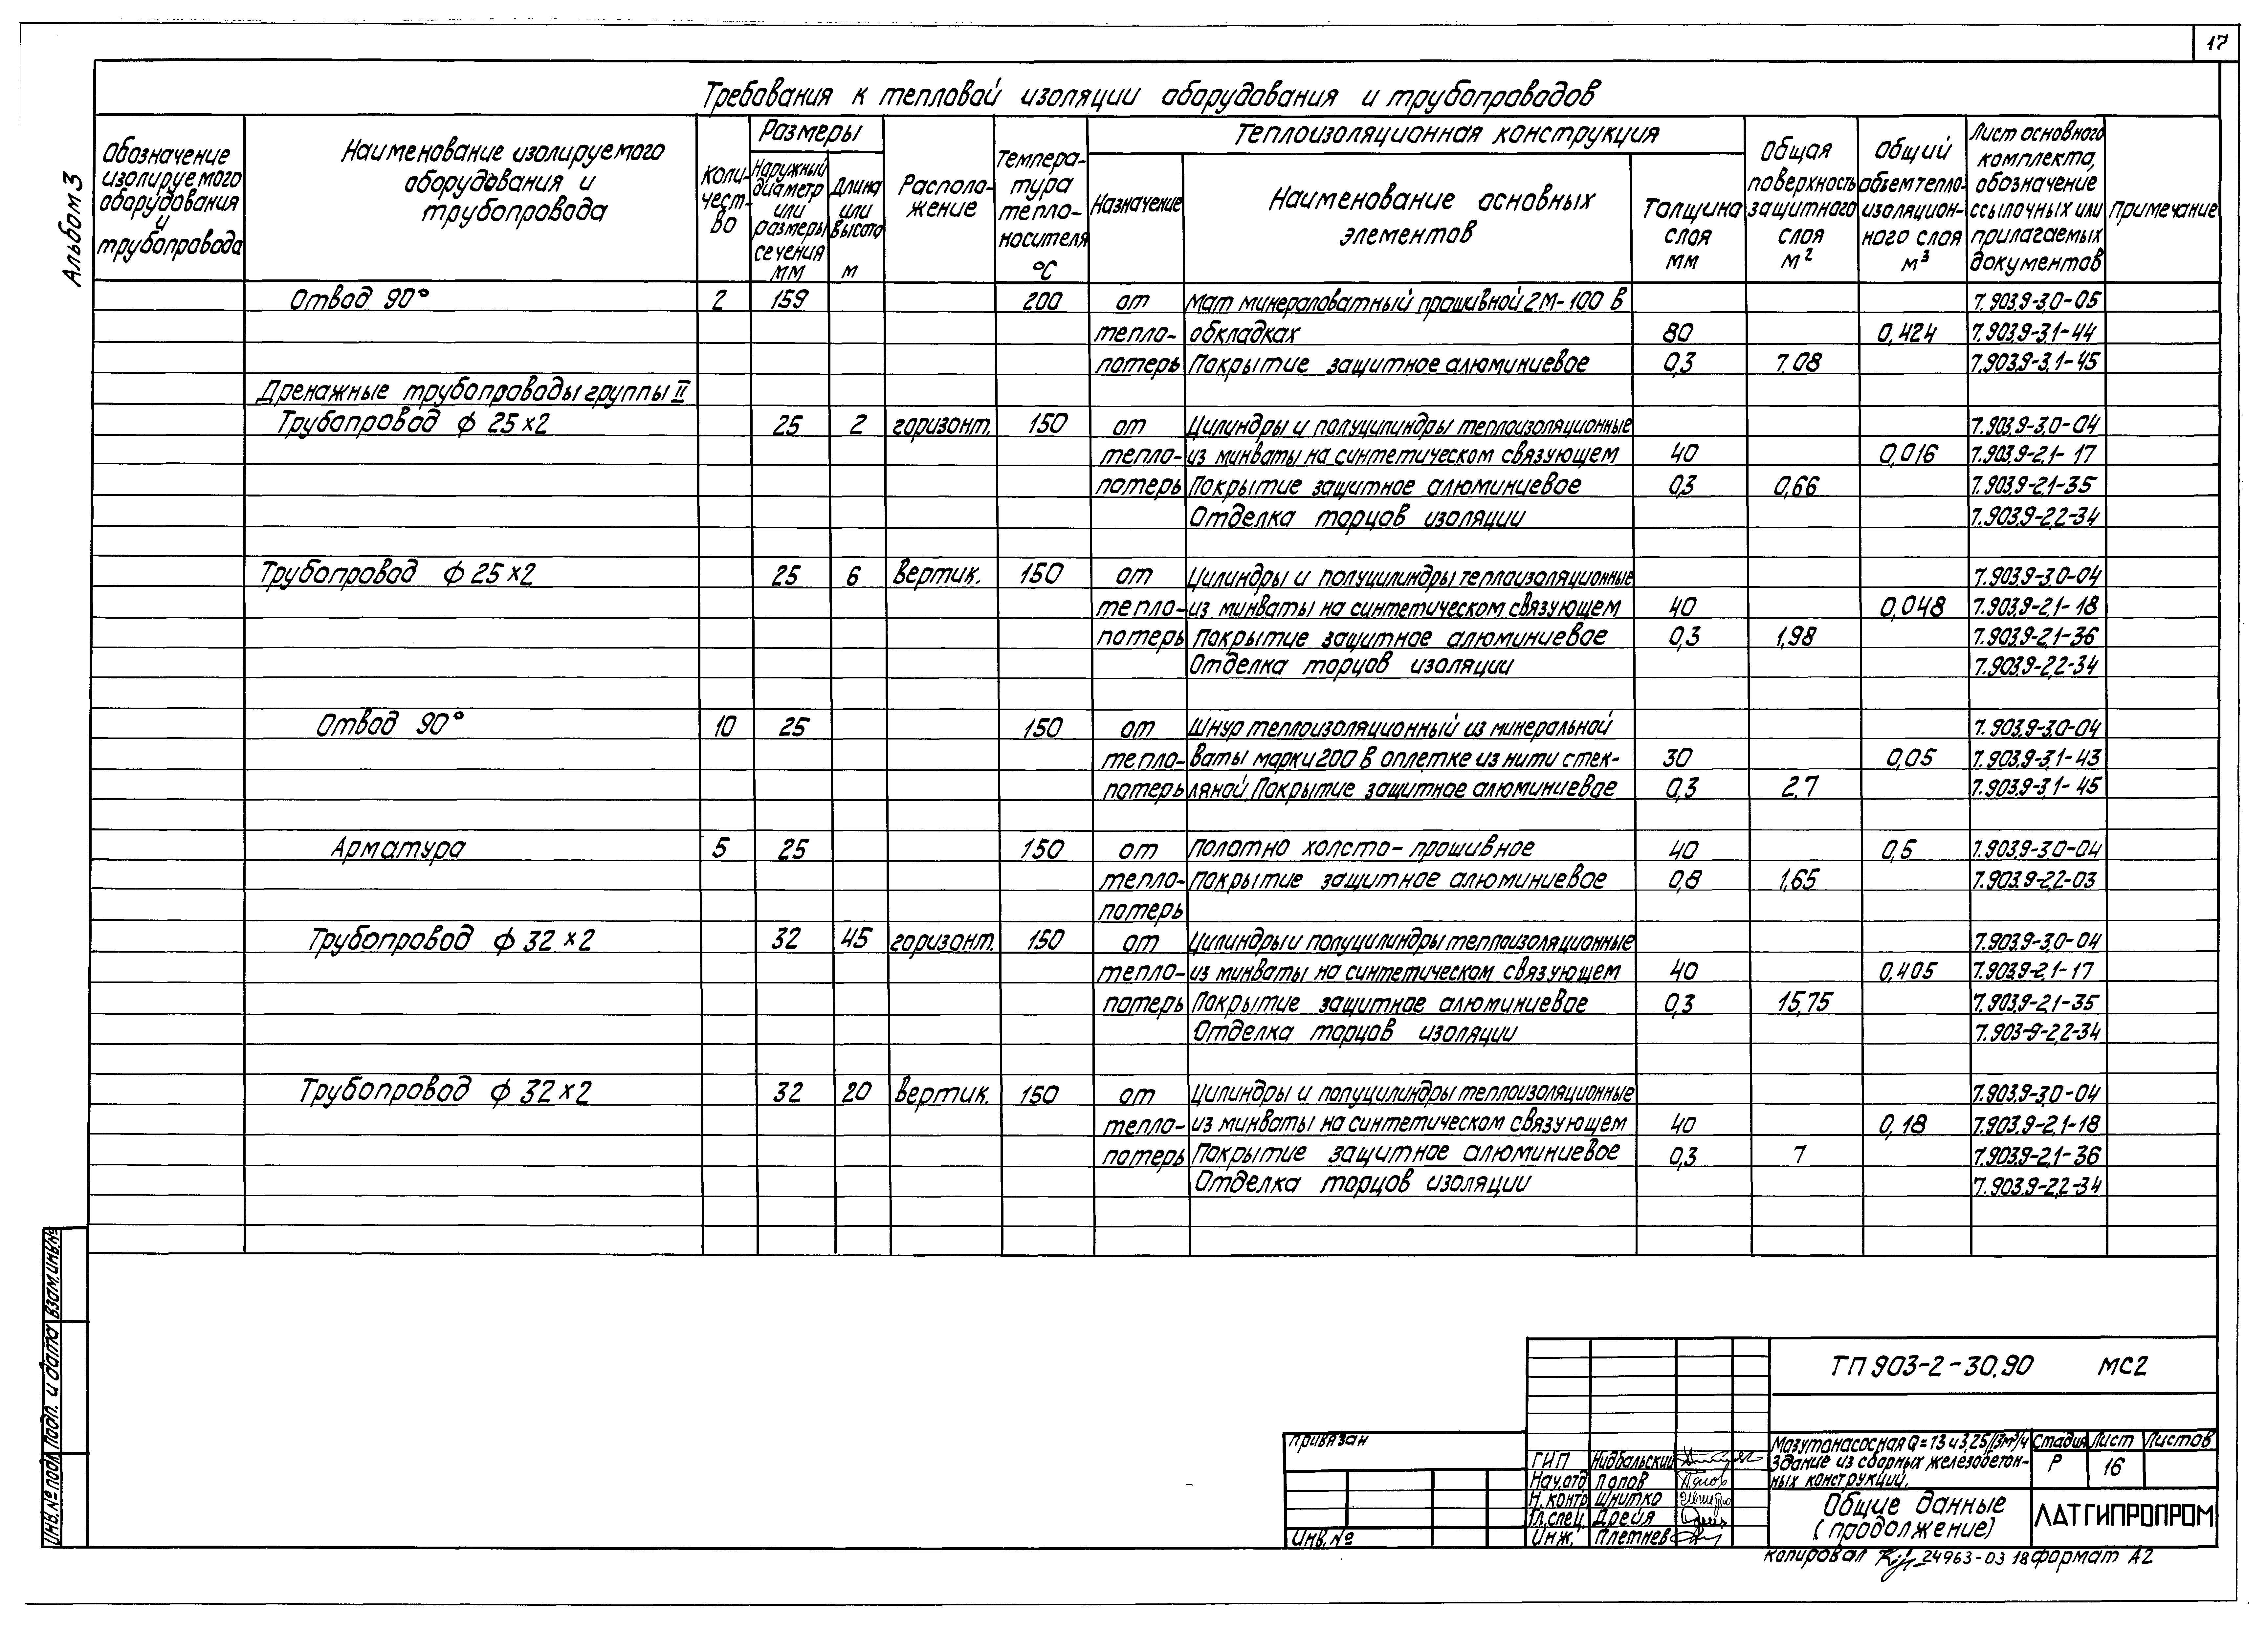 17
Альбом 3
Требования к тепловой изоляции оборудования и трубопроводов
Обозначение изолируемого оборудования и трубопровода
Наименование изолируемого оборудования и трубопровода
Коли-чест-во
Размеры
Наружный диаметр или размеры сечения мм
Длина или высота м
Располо-жение
Темпера-тура тепло-носителя °С
Теплоизоляционная конструкция
Назначение
Наименование основных элементов
Толщина слоя мм
Общая поверхность защитного слоя м²
Общий объем тепло-изоляцион-ного слоя м³
Лист основного комплекта, обозначение ссылочных или прилагаемых документов
Примечание
Отвод 90° 2 159 200 от Мат минераловатный прошивной 2М-100 в 7.903.9-3.0-05
тепло- обкладках 80 0,424 7.903.9-3.1-44
потерь Покрытие защитное алюминиевое 0,3 7.08 7.903.9-3.1-45
Дренажные трубопроводы группы II
Трубопровод ф 25×2 25 2 горизонт. 150 от Цилиндры и полуцилиндры теплоизоляционные 7.903.9-3.0-04
тепло- из минваты на синтетическом связующем 40 0,016 7.903.9-2.1-17
потерь Покрытие защитное алюминиевое 0,3 0,66 7.903.9-2.1-35
Отделка торцов изоляции 7.903.9-2.2-34
Трубопровод ф 25×2 25 6 вертик. 150 от Цилиндры и полуцилиндры теплоизоляционные 7.903.9-3.0-04
тепло- из минваты на синтетическом связующем 40 0,048 7.903.9-2.1-18
потерь Покрытие защитное алюминиевое 0,3 1,98 7.903.9-2.1-36
Отделка торцов изоляции 7.903.9-2.2-34
Отвод 90° 10 25 150 от Шнур теплоизоляционный из минеральной 7.903.9-3.0-04
тепло- ваты марки 200 в оплетке из нити стек- 30 0,05 7.903.9-3.1-43
потерь лянной. Покрытие защитное алюминиевое 0,3 2,7 7.903.9-3.1-45
Арматура 5 25 150 от Полотно холсто-прошивное 40 0,5 7.903.9-3.0-04
тепло- Покрытие защитное алюминиевое 0,8 1,65 7.903.9-2.2-03
потерь
Трубопровод ф 32×2 32 45 горизонт. 150 от Цилиндры и полуцилиндры теплоизоляционные 7.903.9-3.0-04
тепло- из минваты на синтетическом связующем 40 0,405 7.903.9-2.1-17
потерь Покрытие защитное алюминиевое 0,3 15,75 7.903.9-2.1-35
Отделка торцов изоляции 7.903-9-2.2-34
Трубопровод ф 32×2 32 20 вертик. 150 от Цилиндры и полуцилиндры теплоизоляционные 7.903.9-3.0-04
тепло- из минваты на синтетическом связующем 40 0,18 7.903.9-2.1-18
потерь Покрытие защитное алюминиевое 0,3 7 7.903.9-2.1-36
Отделка торцов изоляции 7.903.9-2.2-34
Инв. № подл. Подп. и дата Взам. инв. №
ТП 903-2-30.90 МС2
Привязан
Инв. №
ГИП Нидбальский
Нач.отд Попов
Н. контр. Шнитко
Гл.спец. Дрейя
Инж. Плетнев
Мазутонасосная Q=13 и 3,25/13 м³/ч
Здание из сборных железобетон-
ных конструкций.
Стадия Лист Листов
Р 16
Общие данные
(продолжение)
ЛАТГИПРОПРОМ
копировал 24963-03 18 формат А2